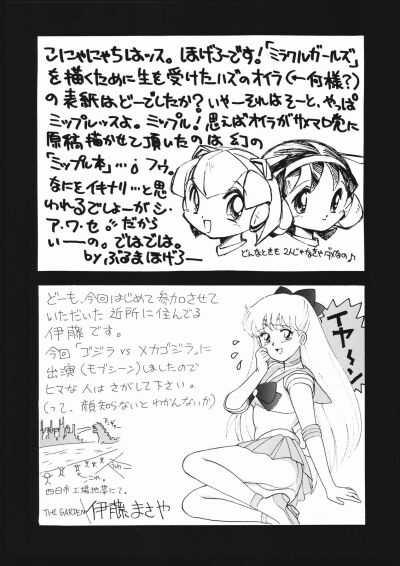 こにゃにゃちはッス。ほげろーです!「ミラクルガールズ」
を描くために生を受けたハズのオイラ(←何様?)
の表紙はどーでしたか?いゃーそれはそーと、やっぱ
ミップルッスよ。ミップル!思えばオイラがサメマロ党に
原稿描かせて頂いたのは幻の
「ミップル本」…。フゥ。
なにをイキナリ…と思
われるでしょーがシ・
ア・ワ・セ。だから
いーの。ではでは。
byぶるまほげろー
どんなときも 2人じゃなきゃダメなの♪
どーも、今回はじめて参加させて
いただいた 近所に住んでる
伊藤です。
今回「ゴジラ vs メカゴジラ」に
出演(モブシーン)しましたので
ヒマな人は さがして下さい。
(って、顔知らないとわかんないか)
四日市工場地帯にて。
THE GARDEN 伊藤まさや
イヤ〜ン